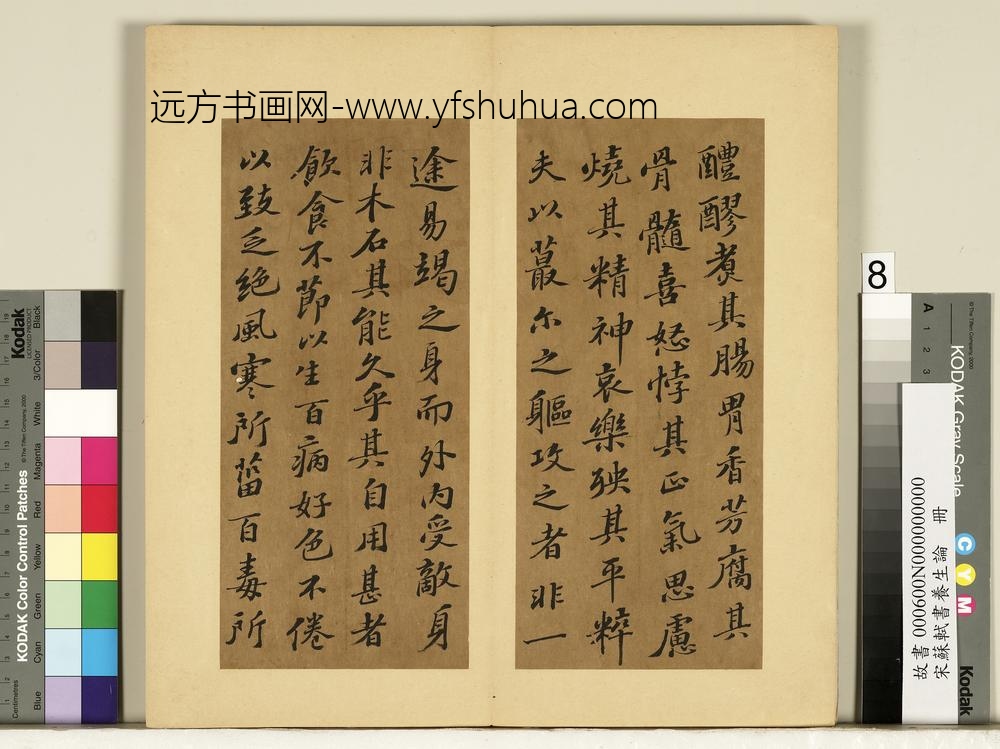 远方书画网-www.yfshuhua.com
醴醪煑其腸胃香芳腐其
骨髓喜怒悖其正氣思慮
燒其精神哀樂殃其平粹
夫以蕞尓之軀攻之者非一
途易竭之身而外内受敵身
非木石其能久乎其自用甚者
飲食不節以生百病好色不倦
以致乏絶風寒所菑百毒所
8
故書 000600N000000000
宋蘇軾書養生論 冊
Kodak
LICENSED PRODUCT
Black
3/Color
White
Magenta
Red
Yellow
Green
Cyan
Blue
KODAK Color Control Patches
© The Tiffen Company, 2000
Centimetres
KODAK Gray Scale
A 1 2 3
C Y M
Kodak
© The Tiffen Company, 2000